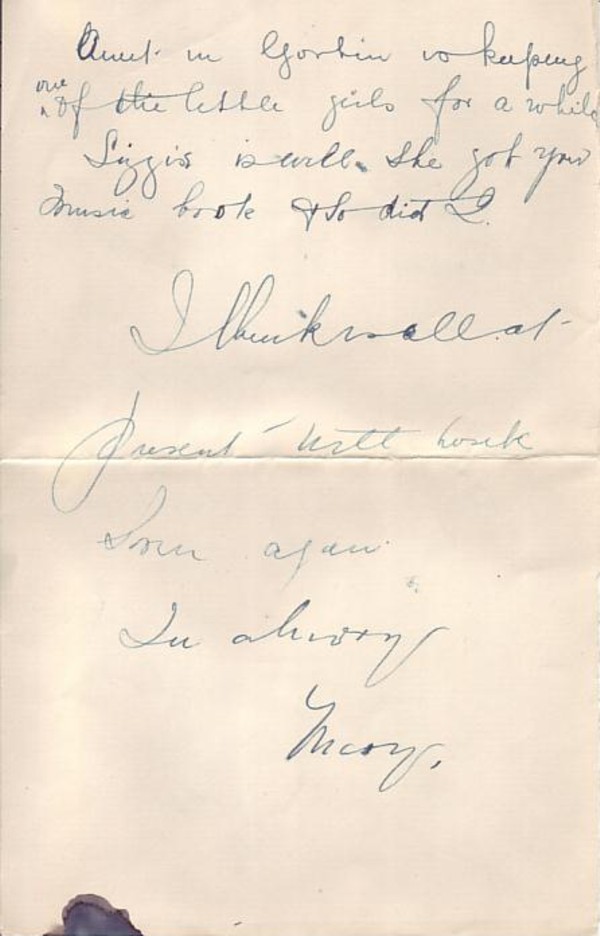 Aunt in Gortin is keeping
one
of the little girls for a while
Lizzie is well. She got your
Music book & So did I.
I think is all at
Present Will write
Soon again
In
Mary.